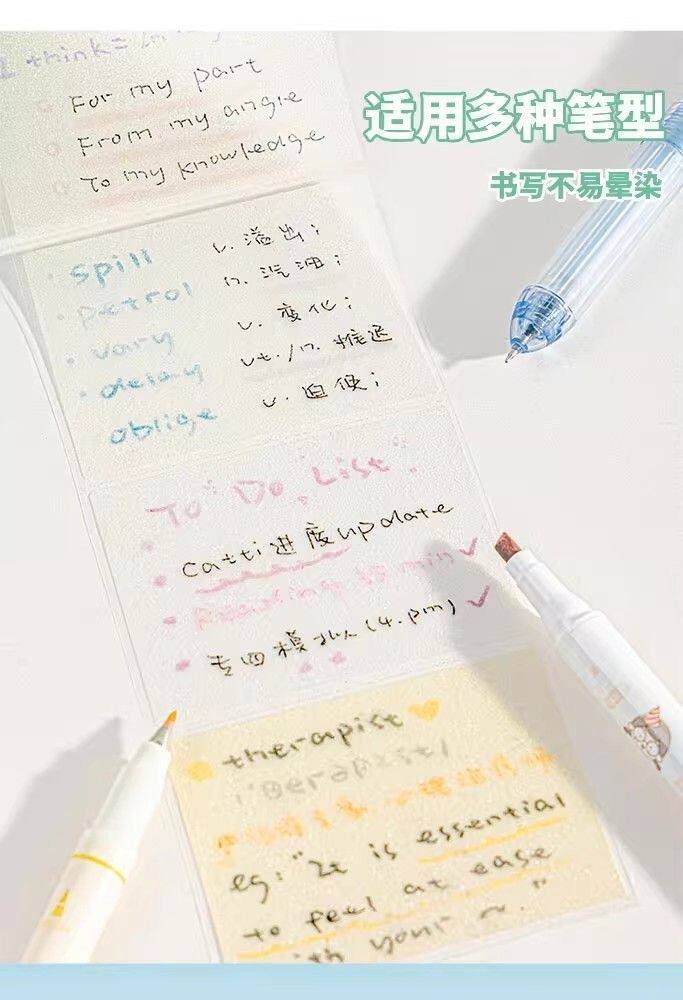 适用多种笔型
书写不易晕染
I think =
For my part
From my angle
To my knowledge
spill v. 溢出；
petrol n. 汽油；
vary v. 变化；
delay vt./n. 推迟
oblige v. 迫使；
To Do List
Catti进度update
Reading 35 min ✓
专四模拟(4.pm) ✓
therapist
eg: "It is essential
to feel at ease
with your ~."